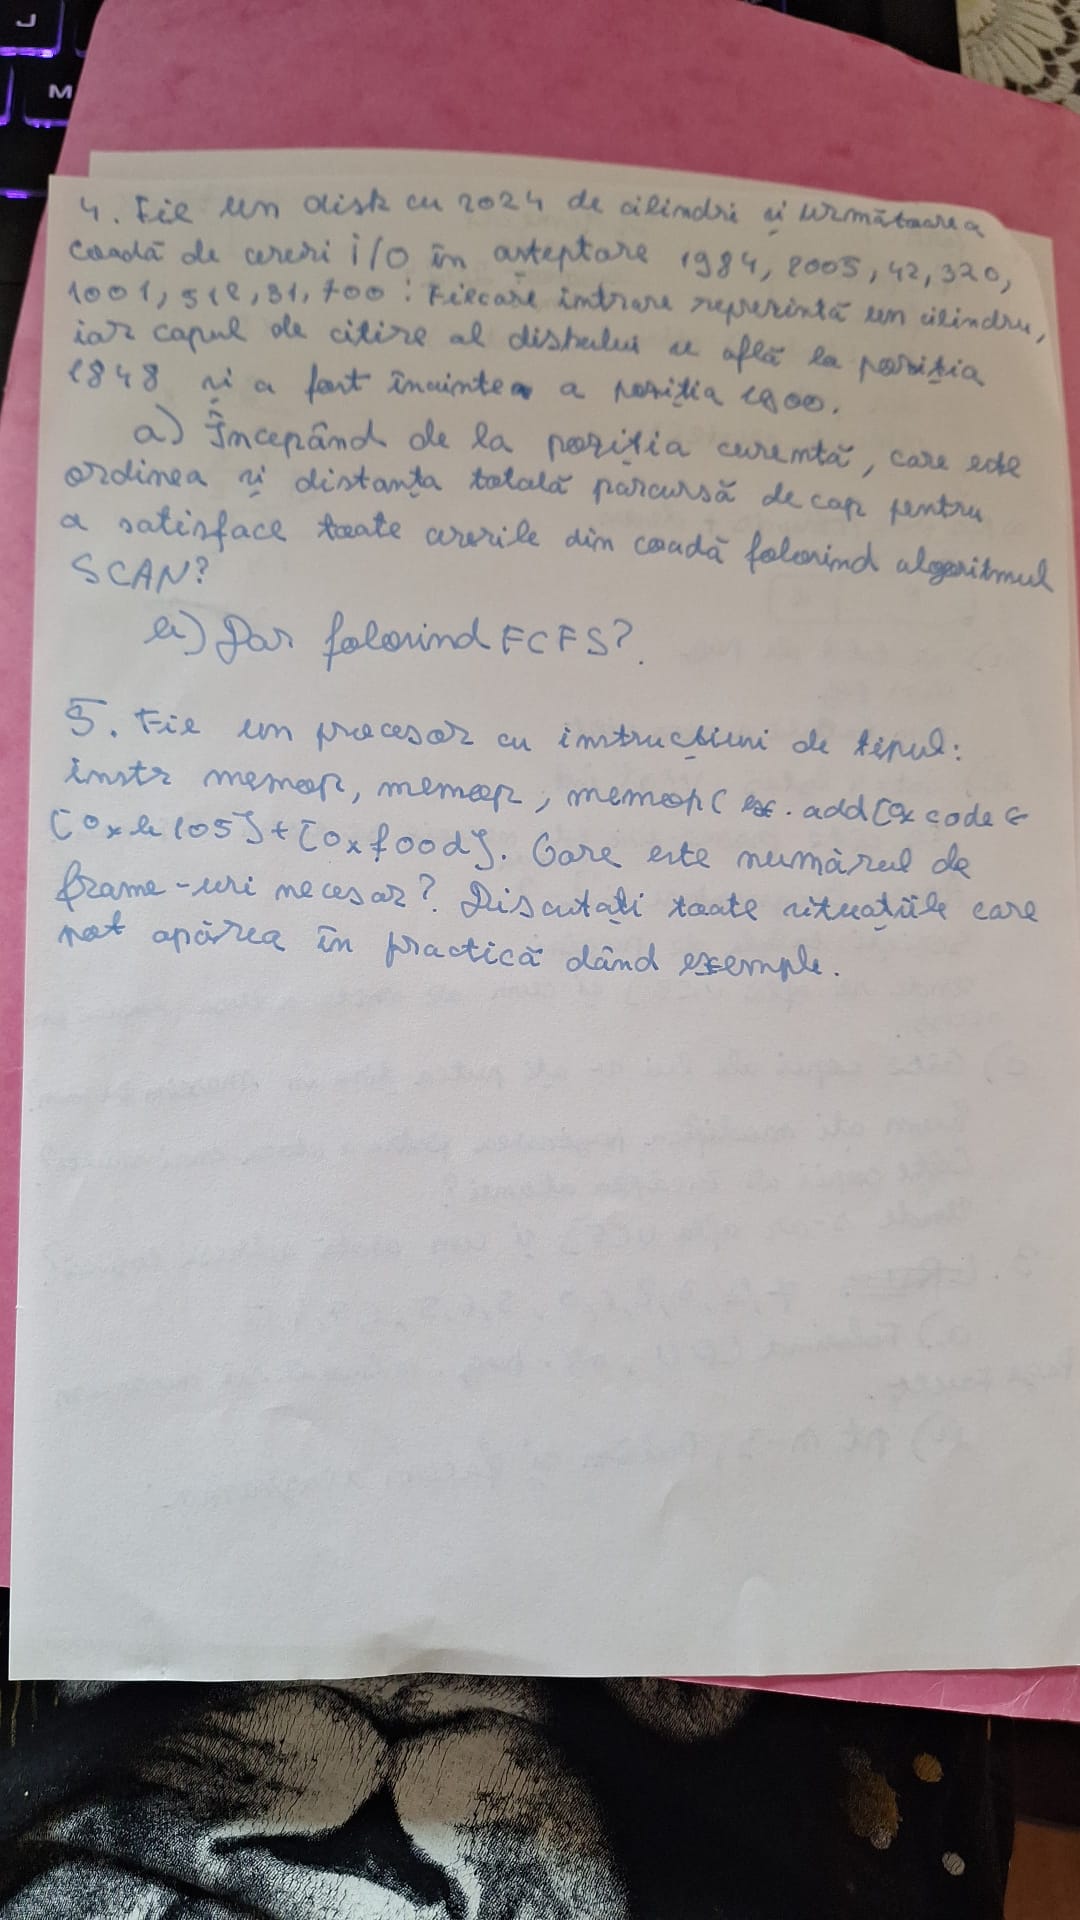 J
M
4. Fie un disk cu 2024 de cilindri și următoarea
coadă de cereri i/o în așteptare 1984, 2005, 42, 320,
1001, 512, 31, 700 : Fiecare intrare reprezintă un cilindru,
iar capul de citire al diskului se află la poziția
1848 și a fost înainte a poziția 1900.
a) Începând de la poziția curentă, care este
ordinea și distanța totală parcursă de cap pentru
a satisface toate cererile din coadă folosind algoritmul
SCAN?
b) Dar folosind FCFS?
5. Fie un procesor cu instrucțiuni de tipul:
instr memop, memop, memop( ex. add [0x code ←
[0x b105] + [0x f00d]. Care este numărul de
frame-uri necesar? Discutați toate situațiile care
pot apărea în practică dând exemple.